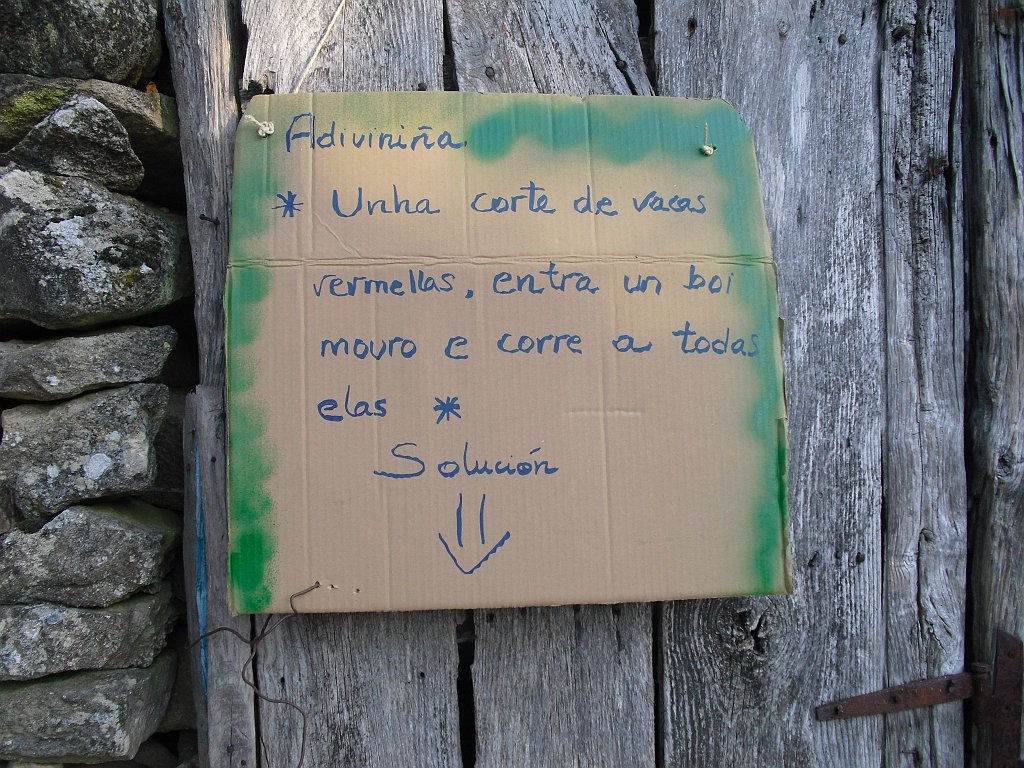 Adiviniña.
* Unha corte de vacas
vermellas, entra un boi
mouro e corre a todas
elas *
Solución